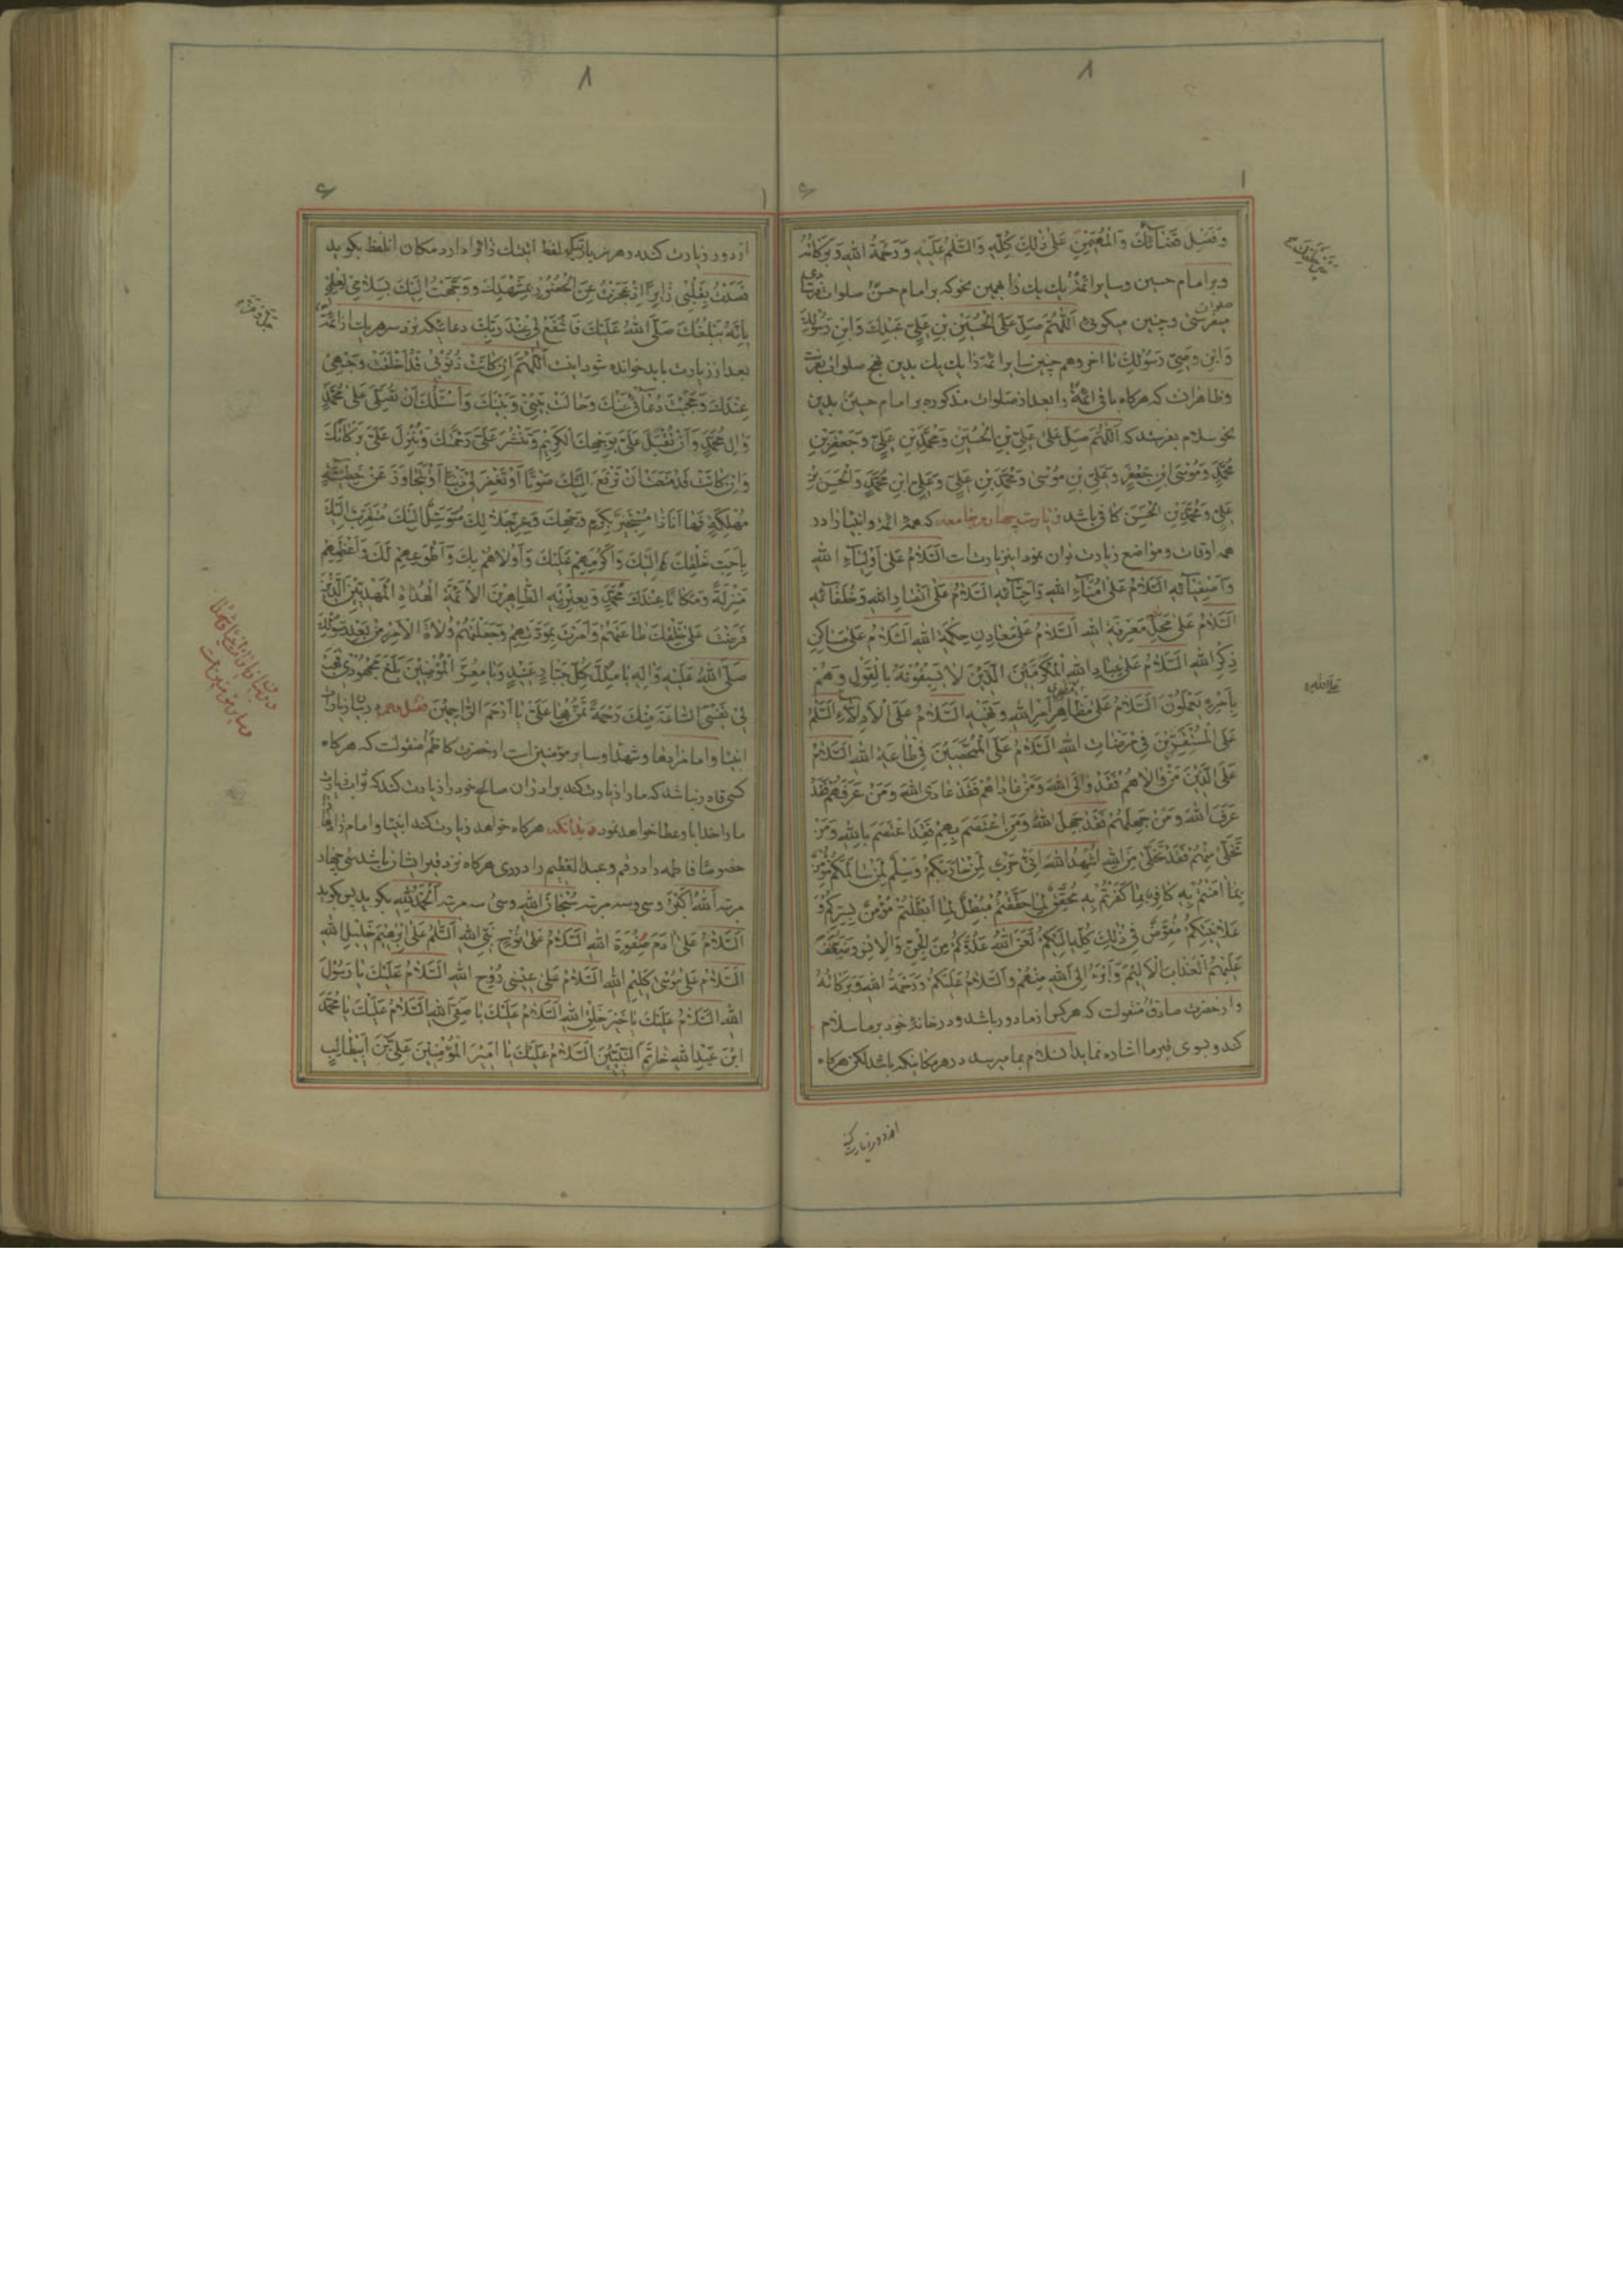 ٨
٨
وَفَصْلِ قَضَائِكَ وَالْمُهَيْمِنِ عَلَى ذٰلِكَ كُلِّهِ وَالسَّلَامُ عَلَيْهِ وَرَحْمَةُ اللهِ وَبَرَكَاتُهُ
وبر امام حسين وساير ائمه يك يك را همين نحو كه بر امام حسن صلوات
ميفرستى وچنين ميكوئى اَللّٰهُمَّ صَلِّ عَلَى الْحُسَيْنِ بْنِ عَلِيٍّ عَبْدِكَ وَابْنِ رَسُولِكَ
وَابْنِ وَصِيِّ رَسُولِكَ تا اخر وهم چنين ساير ائمه را يك يك بدين نهج صلوات بفرست
وظاهر انست كه هركاه باقى ائمه را بعد از صلوات مذكوره بر امام حسين بدين
نحو سلام بفرستد كه اَللّٰهُمَّ صَلِّ عَلٰى عَلِيِّ بْنِ الْحُسَيْنِ وَمُحَمَّدِ بْنِ عَلِيٍّ وَجَعْفَرِ بْنِ
مُحَمَّدٍ وَمُوسَى ابْنِ جَعْفَرٍ وَعَلِيِّ بْنِ مُوسٰى وَمُحَمَّدِ بْنِ عَلِيٍّ وَعَلِيِّ ابْنِ مُحَمَّدٍ وَالْحَسَنِ بْنِ
عَلِيٍّ وَمُحَمَّدِ بْنِ الْحَسَنِ كافى باشد زيارت چهارم جامعه كه همه ائمه وانبيا را در
همه اوقات ومواضع زيارت توان نمود اين زيارتست اَلسَّلَامُ عَلٰى اَوْلِيَاءِ اللهِ
وَاَصْفِيَائِهِ اَلسَّلَامُ عَلٰى اُمَنَاءِ اللهِ وَاَحِبَّائِهِ اَلسَّلَامُ عَلٰى اَنْصَارِ اللهِ وَخُلَفَائِهِ
اَلسَّلَامُ عَلٰى مَحَلِّ مَعْرِفَةِ اللهِ اَلسَّلَامُ عَلٰى مَعَادِنِ حِكْمَةِ اللهِ اَلسَّلَامُ عَلٰى مَسَاكِنِ
ذِكْرِ اللهِ اَلسَّلَامُ عَلٰى عِبَادِ اللهِ الْمُكْرَمِينَ الَّذِينَ لَا يَسْبِقُونَهُ بِالْقَوْلِ وَهُمْ
بِاَمْرِهِ يَعْمَلُونَ اَلسَّلَامُ عَلٰى مَظَاهِرِ اَمْرِ اللهِ وَنَهْيِهِ اَلسَّلَامُ عَلَى الْاَدِلَّاءِ اَلسَّلَامُ
عَلَى الْمُسْتَقِرِّينَ فِي مَرْضَاتِ اللهِ اَلسَّلَامُ عَلَى الْمُمَحَّصِينَ فِي طَاعَةِ اللهِ اَلسَّلَامُ
عَلَى الَّذِينَ مَنْ وَالَاهُمْ فَقَدْ وَالَى اللهَ وَمَنْ عَادَاهُمْ فَقَدْ عَادَى اللهَ وَمَنْ عَرَفَهُمْ فَقَدْ
عَرَفَ اللهَ وَمَنْ جَهِلَهُمْ فَقَدْ جَهِلَ اللهَ وَمَنِ اعْتَصَمَ بِهِمْ فَقَدِ اعْتَصَمَ بِاللهِ وَمَنْ
تَخَلّٰى مِنْهُمْ فَقَدْ تَخَلّٰى مِنَ اللهِ اُشْهِدُ اللهَ اَنِّي حَرْبٌ لِمَنْ حَارَبَكُمْ وَسِلْمٌ لِمَنْ سَالَمَكُمْ مُؤْمِنٌ
بِمَا اٰمَنْتُمْ بِهِ كَافِرٌ بِمَا كَفَرْتُمْ بِهِ مُحَقِّقٌ لِمَا حَقَّقْتُمْ مُبْطِلٌ لِمَا اَبْطَلْتُمْ مُؤْمِنٌ بِسِرِّكُمْ وَ
عَلَانِيَتِكُمْ مُفَوِّضٌ فِي ذٰلِكَ كُلِّهِ اِلَيْكُمْ لَعَنَ اللهُ عَدُوَّكُمْ مِنَ الْجِنِّ وَالْاِنْسِ وَضَاعَفَ
عَلَيْهِمُ الْعَذَابَ الْاَلِيمَ وَاَبْرَءُ اِلَى اللهِ مِنْهُمْ وَالسَّلَامُ عَلَيْكُمْ وَرَحْمَةُ اللهِ وَبَرَكَاتُهُ
واز حضرت صادق منقولست كه هركس از ما دور باشد ودر خانه خود بر ما سلام
كند وبسوى قبر ما اشاره نمايد ان سلام بما ميرسد در هر مكانيكه باشد لكن هركاه
از دور زيارت كنى
از دور زيارت كند در هر زيارتيكه لفظ اتيتك زائرا دارد مكان ان لفظ بكويد
قَصَدْتُ بِقَلْبِي زَائِراً اِذْ عَجَزْتُ عَنِ الْحُضُورِ بِمَشْهَدِكَ وَوَجَّهْتُ اِلَيْكَ بِسَلَامِي لِعِلْمِي
بِاَنَّهُ يَبْلُغُكَ صَلَّى اللهُ عَلَيْكَ فَاشْفَعْ لِي عِنْدَ رَبِّكَ دعائيكه نزد سر هر يك از ائمه
بعد از زيارت بايد خوانده شود اينست اَللّٰهُمَّ اِنْ كَانَتْ ذُنُوبِي قَدْ اَخْلَقَتْ وَجْهِي
عِنْدَكَ وَحَجَبَتْ دُعَائِي عَنْكَ وَحَالَتْ بَيْنِي وَبَيْنَكَ وَاَسْئَلُكَ اَنْ تُصَلِّيَ عَلٰى مُحَمَّدٍ
وَاٰلِ مُحَمَّدٍ وَاَنْ تُقْبِلَ عَلَيَّ بِوَجْهِكَ الْكَرِيمِ وَتَنْشُرَ عَلَيَّ رَحْمَتَكَ وَتُنْزِلَ عَلَيَّ بَرَكَاتِكَ
وَاِنْ كَانَتْ قَدْ مَنَعَتْ اَنْ تَرْفَعَ لِي اِلَيْكَ صَوْتاً اَوْ تَغْفِرَ لِي ذَنْباً اَوْ تَتَجَاوَزَ عَنْ خَطِيئَةٍ
مُهْلِكَةٍ فَهَا اَنَا ذَا مُسْتَجِيرٌ بِكَرَمِ وَجْهِكَ وَعِزِّ جَلَالِكَ مُتَوَسِّلٌ اِلَيْكَ مُتَقَرِّبٌ اِلَيْكَ
بِاَحَبِّ خَلْقِكَ اِلَيْكَ وَاَكْرَمِهِمْ عَلَيْكَ وَاَوْلَاهُمْ بِكَ وَاَطْوَعِهِمْ لَكَ وَاَعْظَمِهِمْ
مَنْزِلَةً وَمَكَاناً عِنْدَكَ مُحَمَّدٍ وَبِعِتْرَتِهِ الطَّاهِرِينَ الْاَئِمَّةِ الْهُدَاةِ الْمَهْدِيِّينَ الَّذِينَ
فَرَضْتَ عَلٰى خَلْقِكَ طَاعَتَهُمْ وَاَمَرْتَ بِمَوَدَّتِهِمْ وَجَعَلْتَهُمْ وُلَاةَ الْاَمْرِ مِنْ بَعْدِ رَسُولِكَ
صَلَّى اللهُ عَلَيْهِ وَاٰلِهِ يَا مُذِلَّ كُلِّ جَبَّارٍ عَنِيدٍ وَيَا مُعِزَّ الْمُؤْمِنِينَ بَلَغَ مَجْهُودِي فَهَبْ
لِي نَفْسِي السَّاعَةَ مِنْكَ وَرَحْمَةً تَمُنُّ بِهَا عَلَيَّ يَا اَرْحَمَ الرَّاحِمِينَ
انبيا وامامزادها وشهدا وساير مؤمنين است از حضرت كاظم منقولست كه هركاه
كسى قادر نباشد كه ما را زيارت كند برادران صالح خود را زيارت كند كه ثواب زيارت
ما را خدا باو عطا خواهد نمود وبدانكه هركاه خواهد زيارت كند انبيا وامام زادها
خصوصا فاطمه را در قم وعبد العظيم را در رى هركاه نزد قبر ايشان باشد سى وچهار
مرتبه اَللهُ اَكْبَرُ وسى وسه مرتبه سُبْحَانَ اللهِ وسى وسه مرتبه اَلْحَمْدُ لِلّٰهِ بكويد پس بكويد
اَلسَّلَامُ عَلٰى اٰدَمَ صَفْوَةِ اللهِ اَلسَّلَامُ عَلٰى نُوحٍ نَبِيِّ اللهِ اَلسَّلَامُ عَلٰى اِبْرٰهِيمَ خَلِيلِ اللهِ
اَلسَّلَامُ عَلٰى مُوسٰى كَلِيمِ اللهِ اَلسَّلَامُ عَلٰى عِيسٰى رُوحِ اللهِ اَلسَّلَامُ عَلَيْكَ يَا رَسُولَ
اللهِ اَلسَّلَامُ عَلَيْكَ يَا خَيْرَ خَلْقِ اللهِ اَلسَّلَامُ عَلَيْكَ يَا صَفِيَّ اللهِ اَلسَّلَامُ عَلَيْكَ يَا مُحَمَّدَ
ابْنَ عَبْدِ اللهِ خَاتَمَ النَّبِيِّينَ اَلسَّلَامُ عَلَيْكَ يَا اَمِيرَ الْمُؤْمِنِينَ عَلِيَّ بْنَ اَبِيطَالِبٍ